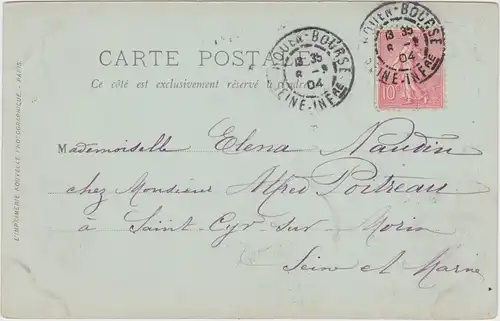 CARTE POSTALE
Ce côté est exclusivement réservé à l'adresse
ROUEN-BOURSE
13 35
8 -
04
SEINE-INFRE
ROUEN-BOURSE
13 35
8 -
04
SEINE-INFRE
10
Mademoiselle Elena Naudin
chez Monsieur Alfred Poitreau
à Saint-Cyr-sur-Morin
Seine et Marne
L'IMPRIMERIE NOUVELLE PHOTOGRAPHIQUE - PARIS